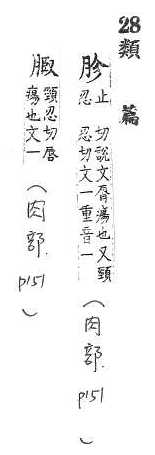 28類 篇
胗 止忍 切說文脣瘍也又頸忍切文一重音一 (肉部. p151)
頸忍切脣瘍也文一 (肉部. p151)